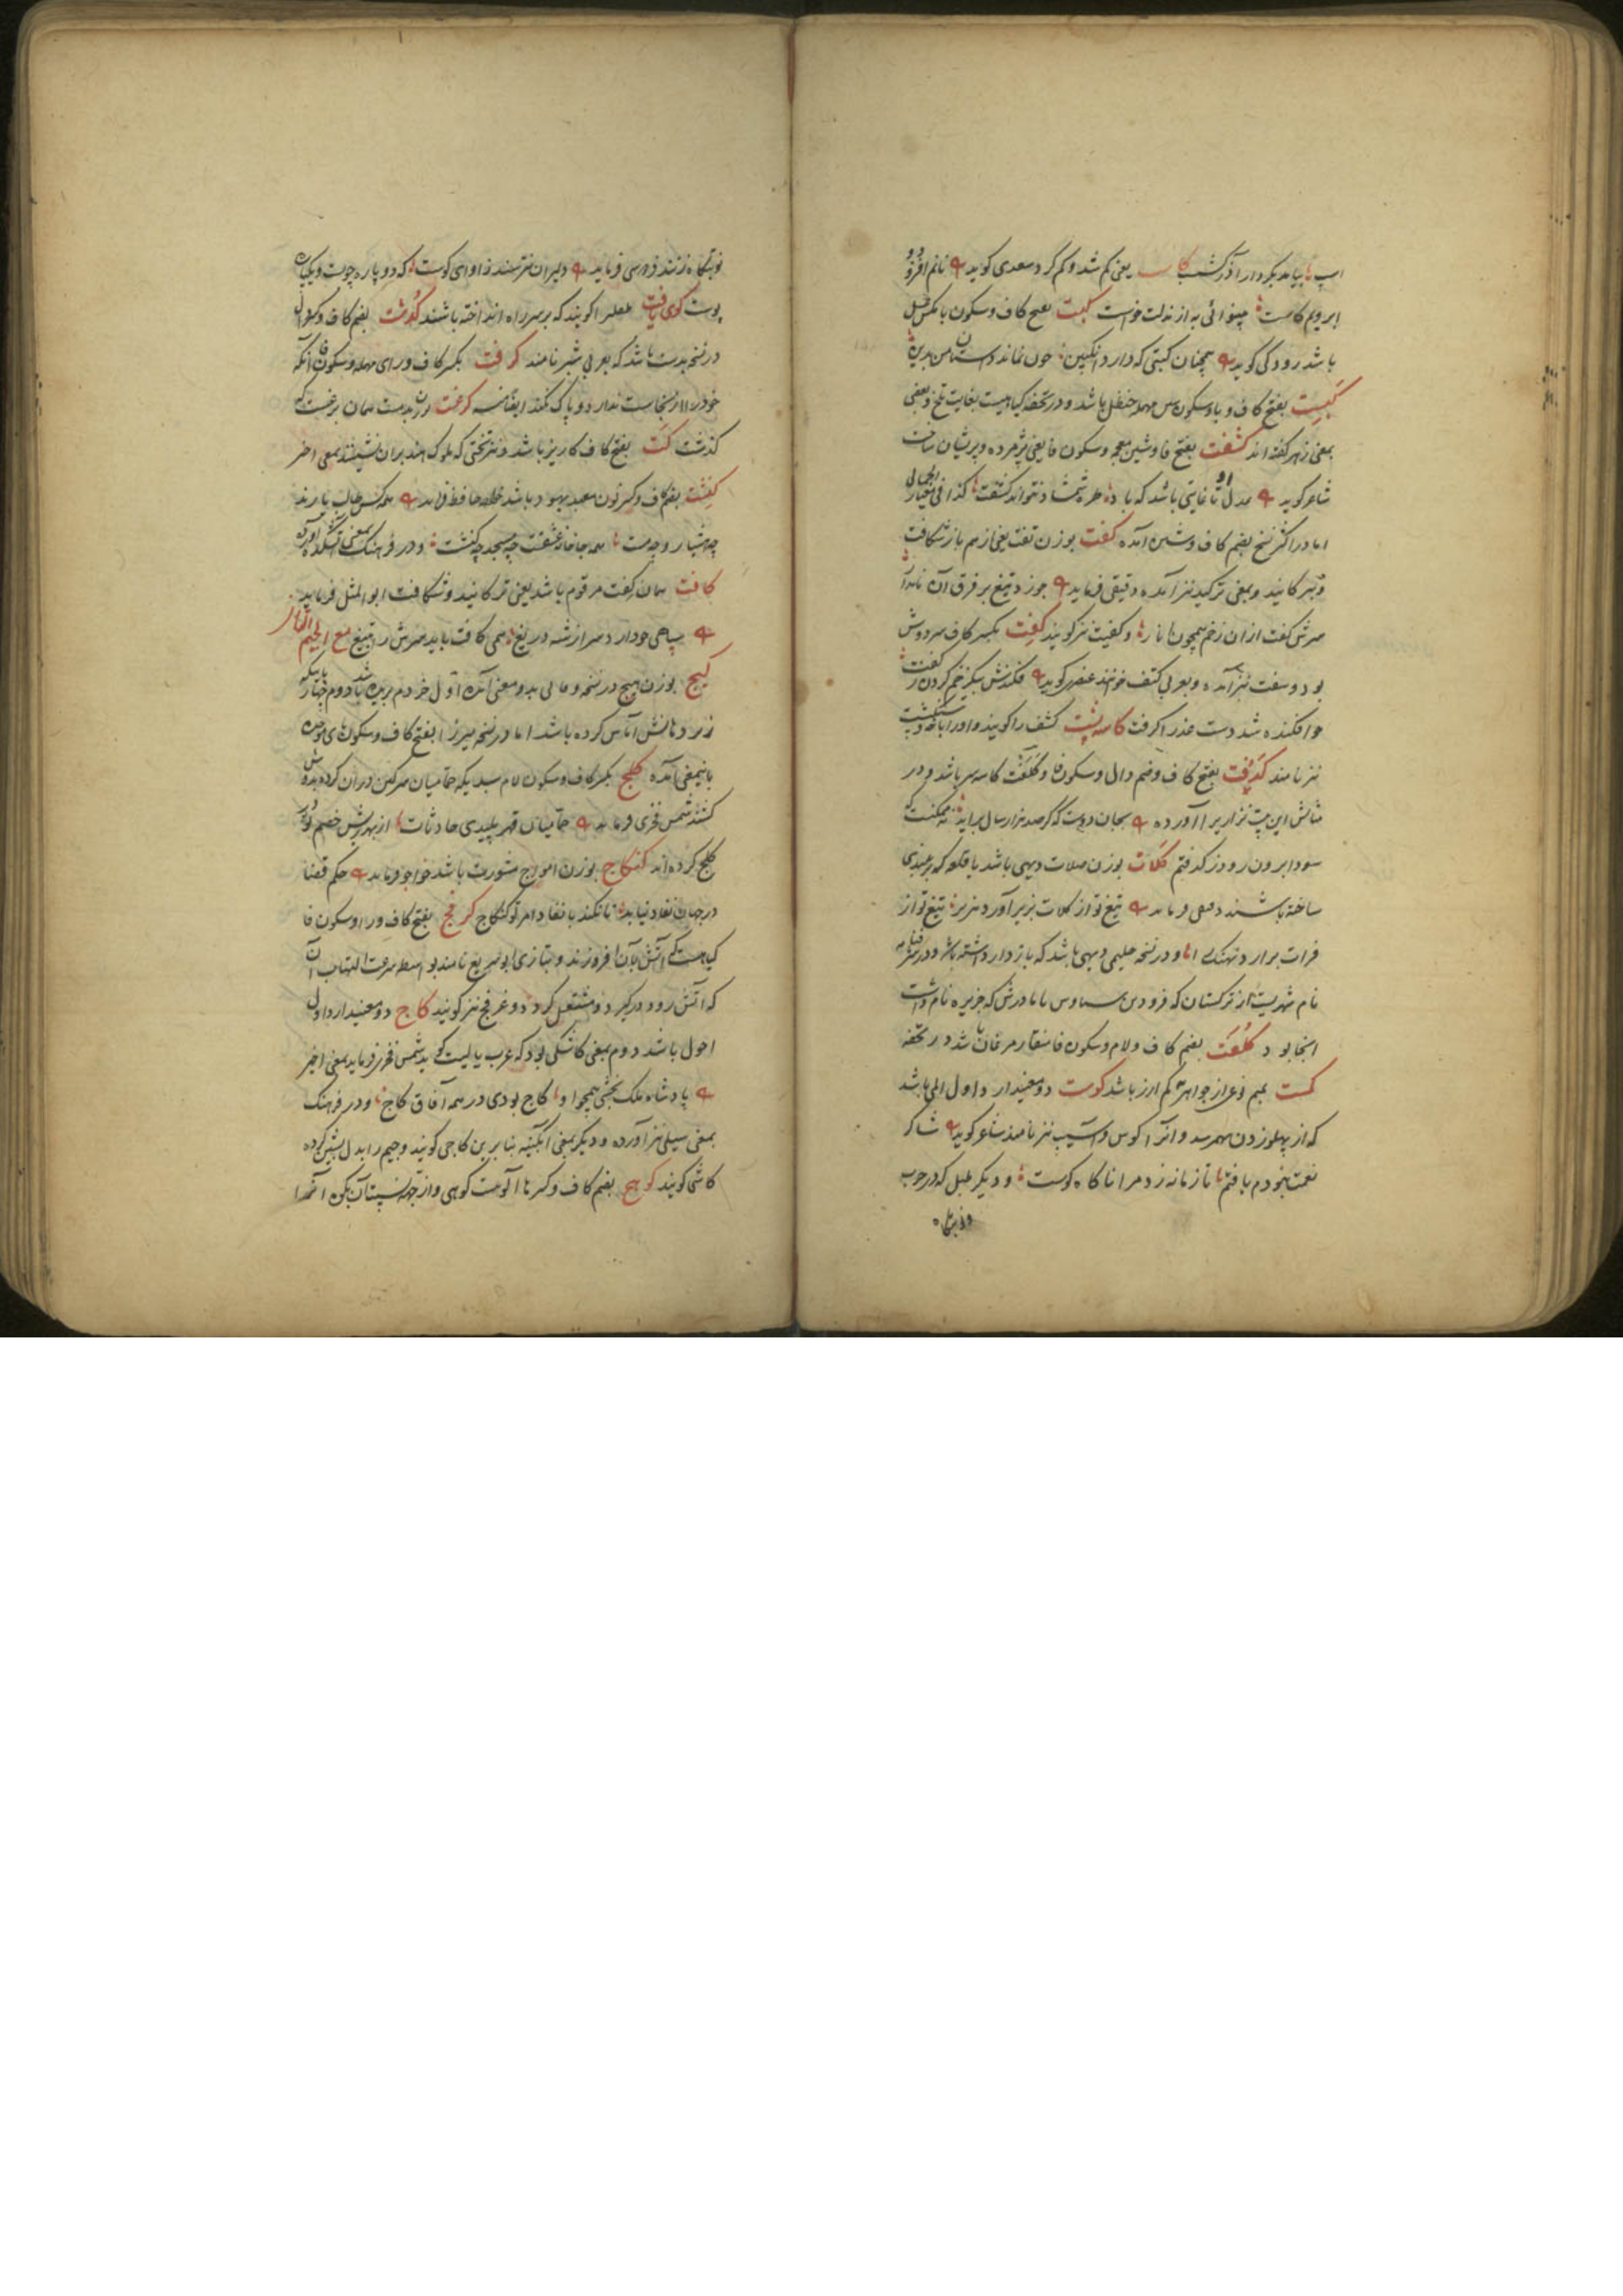 اسپ بیامد بکردار آذرگشسپ کاست یعنی کم شد و کم کرد سعدی کوید نانم افزود
ابرویم کاست بینوائی به از مذلت خواست کبت بفتح کاف و سکون با مکس عسل
باشد رودکی کوید همچنان کبتی که دارد انکبین چون نماند داستان من بدین
کبست بفتح کاف و با و سکون سین مهمله حنظل باشد و در تحفه کیاهیست بغایت تلخ و بعضی
بمعنی زهر کفته اند کشفت بفتح فا و شین معجمه و سکون فا یعنی پژمرده و پریشان ساخت
شاعر کوید عدل او تا غایتی باشد که باد طره شمشاد نتواند کشفت کذا فی المعیار
اما در اکثر نسخ بضم کاف و شین آمده کفت بوزن تفت یعنی از هم باز شکافت
و بترکانید و بمعنی ترکید نیز آمده دقیقی فرماید چو زد تیغ بر فرق آن نامدار
سرش کفت از ان زخم همچون انار و کفیت نیز کویند کفت بکسر کاف سر دوش
بود و سفت نیز آمده و بعربی کتف خوانند عنصری کوید فکندش بیک زخم کردن ز کفت
چو افکنده شد دست عذرا کرفت کاسه پشت کشف را کویند و او را باخه و سنکپشت
نیز نامند کدفت بفتح کاف و ضم دال و سکون فا و کلفت کاسه سر باشد و در
مثالش این بیت نزاریرا آورده بجان دوست که کر صد هزار سال براید نه ممکنست که
سودا برون رود ز کدفتم کلات بوزن صلات دیهی باشد یا قلعه که بر بلندی
ساخته باشند دقیقی فرماید تیغ تو از کلات بزیر آورد هزبر تیغ تو از
فرات برارد نهنک را و در نسخه حلیمی دیهی باشد که باز دار داشته باشد و در شرفنامه
نام شهریست از ترکستان که فرود بن سیاوس با مادرش که جریره نام داشت
انجا بود کلفت بضم کاف و لام و سکون فا منقار مرغان باشد در تحفه
کمست بمیم نوعی از جواهر کم ارز باشد کوست دو معنی دارد اول المی باشد
که از پهلو زدن بهم رسد و انرا کوس و آسیب نیز نامند شاعر کوید شاکر
نعمت نبودم یا فتا تا زمانه زد مرا ناکاه کوست و دیکر طبل که در حرب
و نوبتکاه
نوبتکاه زنند فردوسی فرماید دلیران نترسند ز آوای کوست که دو پاره چوبست و یکپاره
پوست کوی یافت طفلی را کویند که بر سر راه انداخته باشند کذشت بضم کاف و کسر ذال
در نسخه بدست باشد که بعربی شبر نامند کرفت بکسر کاف و رای مهمله و سکون فا آنکه
خود را از نجاست ندارد و پاک نکند ایضا منه کرغت وزن بدست همان برغست که
کذشت کت بفتح کاف کاریز باشد و نیز تختی که ملوک هند بران نشینند بمعنی اخر
کنشت بضم کاف و کسر نون معبد یهود باشد خواجه حافظ فرماید همه کس طالب یارند
چه هشیار و چه مست همه جا خانه عشقست چه مسجد چه کنشت و در فرهنک بمعنی آتشکده آورده
کافت همان کفت مرقوم باشد یعنی ترکانید و شکافت ابو المثل فرماید
سپاهی ... دارد سر از شه دریغ همی کافت باید سرش را بتیغ مع الجیم التازی
کیج بوزن هیچ در نسخه وفائی بدو معنی آمده اول خر دم بریده باشد دوم چهارپائیکه
زیر دهانش آماس کرده باشد اما در نسخه میرزا بفتح کاف و سکون بای موحده
باینمعنی آمده کلج بکسر کاف و سکون لام سبدیکه حمامیان سرکین در ان کرده بدوش
کشند شمس فخری فرماید حمامیان قهر پلیدی حادثات از بهر ریش خصم تو در
کلج کرده اند کنکاج بوزن امواج مشورت باشد خواجو فرماید حکم قضا
در جهان نفاذ نیابد تا نکند با نفاذ امر تو کنکاج کرفج بفتح کاف و را و سکون فا
کیاهیست که آتش بآن افروزند و بتازی ابو سریع نامند بواسطه سرعت التهاب آن
که اتش زود در کیرد و مشتعل کردد و غرفج نیز کویند کاج دو معنی دارد اول
احول باشد دوم بمعنی کاشکی بود که عرب یا لیت کوید شمس فخری فرماید بمعنی اخیر
پادشاه ملک بخشی همچو او کاج بودی در همه آفاق کاج و در فرهنک
بمعنی سیلی نیز آورده و دیکر بمعنی آبکینه بنا برین کاجی کویند و جیم را بدل بشین کرده
کاشی کویند کوهج بضم کاف و کسر ها آلوست کوهی و از جهه ... آن بکن انرا